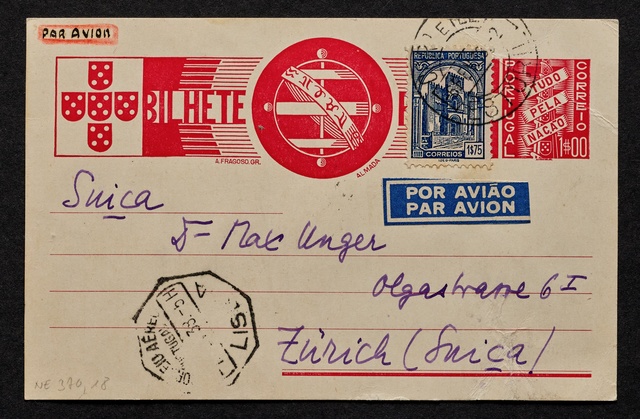 PAR AVION
BILHETE
A. FRAGOSO. GR.
ALMADA
REPUBLICA PORTUGUESA
CORREIOS 1$75
PORTUGAL
TUDO PELA NAÇÃO
CORREIO
1$00
POR AVIÃO
PAR AVION
Suiça
Dr Max Unger
Olgastrasse 6 I
Zürich (Suiça)
NE 370,18